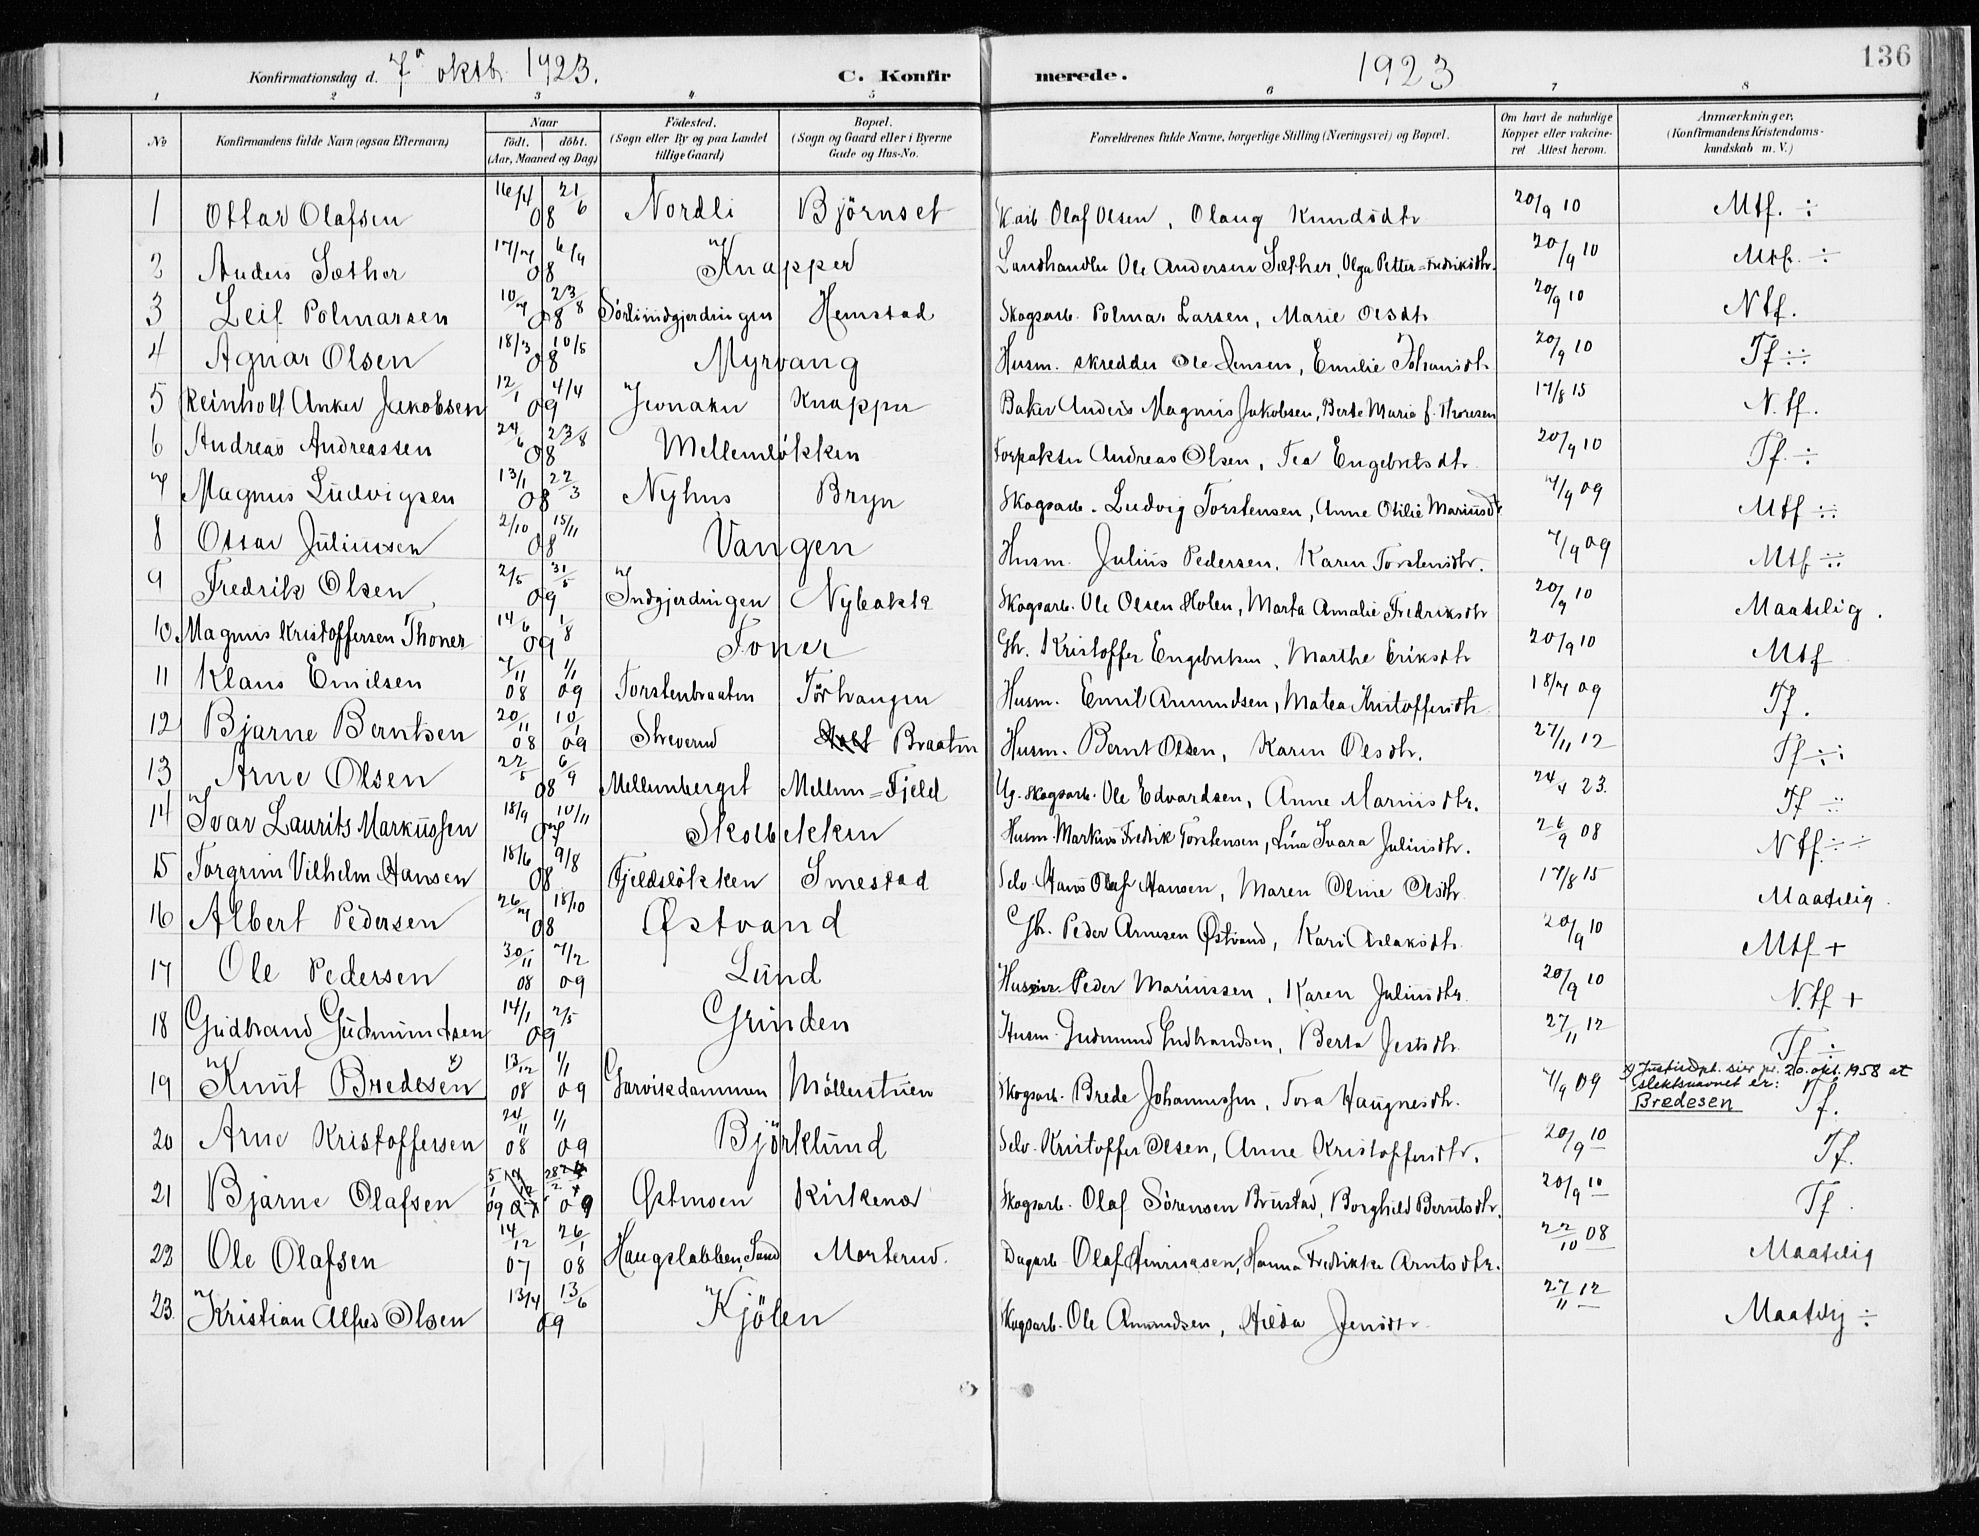 136
Konfirmationsdag d. 7de oktb. 1923. C. Konfirmerede. 1923
1 2 3 4 5 6 7 8
No Konfirmandens fulde Navn (ogsaa Efternavn) Naar födt. döbt. (Aar, Maaned og Dag) Födested. (Sogn eller By og paa Landet tillige Gaard) Bopæl. (Sogn og Gaard eller i Byerne Gade og Hus-No. Forældrenes fulde Navne, borgerlige Stilling (Næringsvei) og Bopæl. Om havt de naturlige Kopper eller vakcineret Attest herom. Anmærkninger. (Konfirmandens Kristendomskundskab m. V.)
1 Ottar Olafsen 16/4 21/6 08 Nordli Björnset Olaf Olsen, Olaug Knudsdtr 20/9 10 Mtf. ÷
2 Anders Sæther 17/7 6/9 08 Knapper Landhandler Ole Andersen Sæther, Olga Petter=Fredriksdtr. 20/9 10 Mtf. ÷
3 Leif Polmarsen 10/7 23/8 08 Sörlindgjerdingen Hemstad Skogsarb. Polmar Larsen, Marie Olsdtr 20/9 10 Ntf.
4 Agnar Olsen 18/3 10/5 08 Myrvang Husm. skredder Ole Jensen, Emilie Johansdtr 20/9 10 Tf ÷÷
5 Reinholf Anker Jakobsen 12/1 4/4 09 Jevnaker Knapper Baker Anders Magnus Jakobsen, Berte Marie f. Thoresen 17/8 15 N.tf.
6 Andreas Andreassen 24/6 23/8 08 Mellemlökken Forpakter Andreas Olsen, Tea Engebretsdtr 20/9 10 Tf. ÷
7 Magnus Ludvigsen 13/1 22/3 08 Nyhus Bryn Skogsarb. Ludvig Torstensen, Anne Otilie Mariusdtr 7/9 09 Mtf ÷÷
8 Ottar Juliussen 2/10 15/11 08 Vangen Husm. Julius Pedersen, Karen Torstensdtr. 7/9 09 Mtf ÷÷
9 Fredrik Olsen 2/5 31/5 09 Indgjerdingen Nybakk Skogsarb. Ole Olsen Holen, Marta Amalie Fredriksdtr 20/9 10 Maatelig.
10. Magnus Kristoffersen Thoner 14/6 1/8 09 Toner Gbr. Kristoffer Engebretsen, Marthe Eriksdtr 20/9 10 Mtf
11 Klaus Emilsen 7/11 08 1/1 09 Torstenbraaten Torhaugen Husm. Emil Amundsen, Matea Kristoffersdtr 18/7 09 Tf.
12 Bjarne Berntsen 20/11 08 10/1 09 Streverud Braaten Husm. Bernt Olsen, Karen Olsdtr. 27/11 12 Tf ÷÷
13 Arne Olsen 22/5 6/9 08 Mellemberget Mellem=Fjeld Ug. skogsarb. Ole Edvardsen, Anne Mariusdtr. 24/4 23. Tf ÷÷
14 Ivar Laurits Markussen 18/9 10/11 07 Skolbekken Husm. Markus Fredrik Torstensen, Lina Ivara Juliusdtr. 26/9 08 Ntf ÷÷
15 Torgrim Vilhelm Hansen 18/6 9/8 08 Fjeldslökken Smestad Selv. Hans Olaf Hansen, Maren Oline Olsdtr 17/8 15 Maatelig.
16 Albert Pedersen 26/7 18/10 08 Østvand Gbr. Peder Arnesen Østvand, Kari Aslaksdtr. 20/9 10 Mtf +
17 Ole Pedersen 30/11 08 7/2 09 Lund Husm. Peder Mariussen, Karen Juliusdtr. 20/9 10 N.tf +
18 Gudbrand Gudmundsen 14/1 2/5 09 Grinden Husm. Gudmund Gudbrandsen, Berta Jensdtr. 27/11 12 Tf ÷
19 Knut Bredesen x) 13/12 08 1/1 09 Garvikdammen Möllerstuen Skogsarb. Brede Johannessen, Tora Haugnesdtr. 7/9 09 x) Justisdpt. sier pr. 20. okt. 1958 at slektsnavnet er: Bredesen Tf.
20 Arne Kristoffersen 24/11 08 1/1 09 Björklund Selv. Kristoffer Olsen, Anne Kristoffersdtr. 20/9 10 Tf.
21 Bjarne Olafsen 5/1 09 28/2 09 Østmoen Kirkenær Skogsarb. Olaf Sörensen Brustad, Borghild Berntsdtr. 20/9 10 Tf.
22 Ole Olafsen 14/12 07 26/1 08 Haugslabben, Sand Morterud. Dagarb. Olaf Henriksen, Hanna Fredrikke Arntsdtr. 22/10 08 Maatelig
23. Kristian Alfred Olsen 13/4 13/6 09 Kjölen Skogsarb. Ole Amundsen, Hilda Jensdtr. 27/11 12 Maatelig ÷